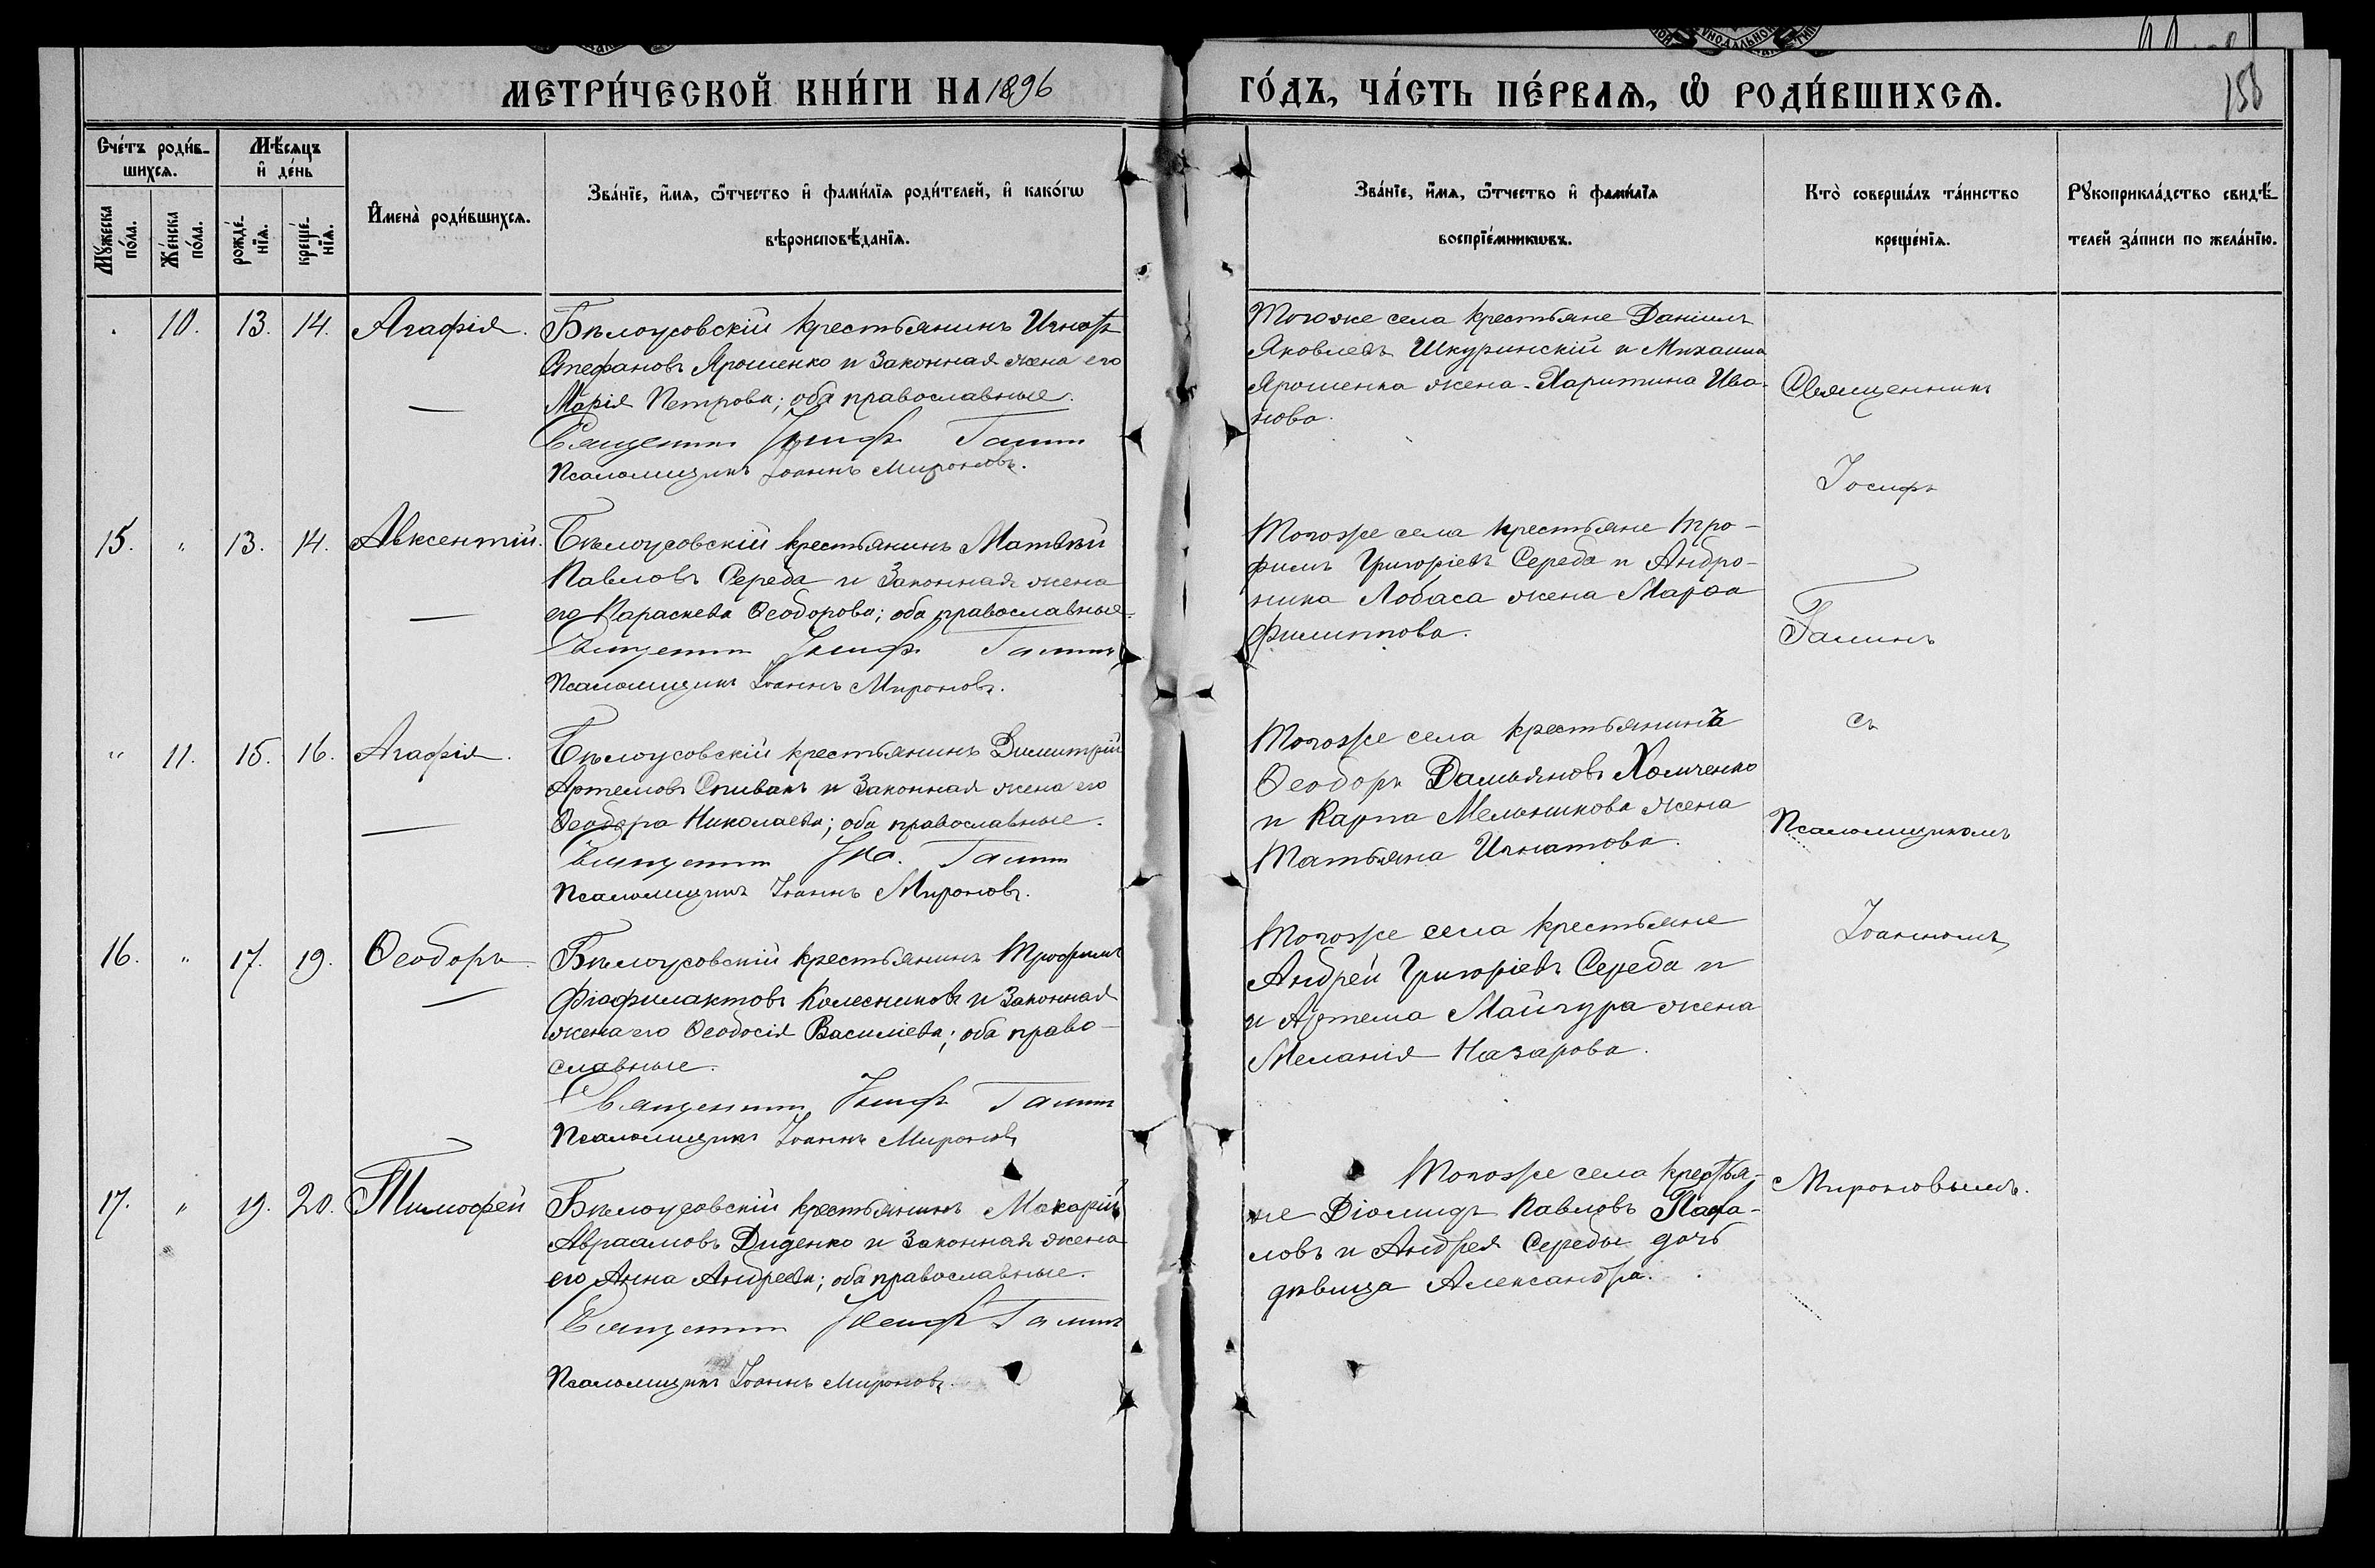 МЕТРИ́ЧЕСКОЙ КНИ́ГИ НА 1896
ГО́ДЪ, ЧА́СТЬ ПЕ́РВАѦ, Ѡ҆ РОДИ́ВШИХСѦ.
158
Сче́тъ роди́в-
шихсѧ.
Мѣ́сѧцъ
и҆ де́нь
Мꙋ́жеска
по́ла.
Же́нска
по́ла.
рожде́-
нїѧ.
креще́-
нїѧ.
И҆мена̀ роди́вшихсѧ.
Зва́нїе, и҆́мѧ, ѻ҆́тчество и҆ фами́лїѧ роди́телей, и҆ како́гѡ
вѣроисповѣ́данїѧ.
Зва́нїе, и҆́мѧ, ѻ҆́тчество и҆ фами́лїѧ
воспрїе́мникѡвъ.
Кто̀ соверша́лъ та́инство
креще́нїѧ.
Рꙋкоприкла́дство свидѣ́-
телей за́писи по жела́нїю.
10. 13. 14. Агафія.
Бѣлоусовскій крестьянинъ Игнатъ
Стефановъ Ярошенко и законная жена его
Марія Петрова; оба православные.
Священникъ Іосифъ Галинъ
Псаломщикъ Іоаннъ Мироновъ.
Тогоже села крестьяне Даніилъ
Яковлевъ Шкуринскій и Михаила
Ярошенка жена Харитина Ива-
нова.
15. " 13. 14. Авксентій.
Бѣлоусовскій крестьянинъ Матвѣй
Павловъ Середа и законная жена
его Параскева Ѳеодорова; оба православные.
Священникъ Іосифъ Галинъ
Псаломщикъ Іоаннъ Мироновъ.
Тогоже села крестьяне Тро-
фимъ Григоріевъ Середа и Андро-
ника Лобаса жена Марѳа
Филиппова.
" 11. 15. 16. Агафія.
Бѣлоусовскій крестьянинъ Димитрій
Артемовъ Спивакъ и законная жена его
Ѳеодора Николаева; оба православные.
Священникъ Іо. Галинъ
Псаломщикъ Іоаннъ Мироновъ.
Тогоже села крестьянинъ
Ѳеодоръ Дамьяновъ Хомченко
и Карпа Мельникова жена
Татьяна Игнатова.
16. " 17. 19. Ѳеодоръ
Бѣлоусовскій крестьянинъ Трофимъ
Фіофилактовъ Колесниковъ и законная
жена его Ѳеодосія Василіева; оба право-
славные.
Священникъ Іосифъ Галинъ
Псаломщикъ Іоаннъ Мироновъ
Тогоже села крестьяне
Андрей Григоріевъ Середа и
и Артема Майгура жена
Меланія Назарова.
17. " 19. 20. Тимофей
Бѣлоусовскій крестьянинъ Макарій
Авраамовъ Диденко и законная жена
его Анна Андреева; оба православные.
Священникъ Іосифъ Галинъ
Псаломщикъ Іоаннъ Мироновъ.
Тогоже села крестья-
не Діомидъ Павловъ
ловъ и Андрея Середы дочь
дѣвица Александра.
Священникъ
Іосифъ
Галинъ
съ
Псаломщикомъ
Іоанномъ
Мироновымъ.